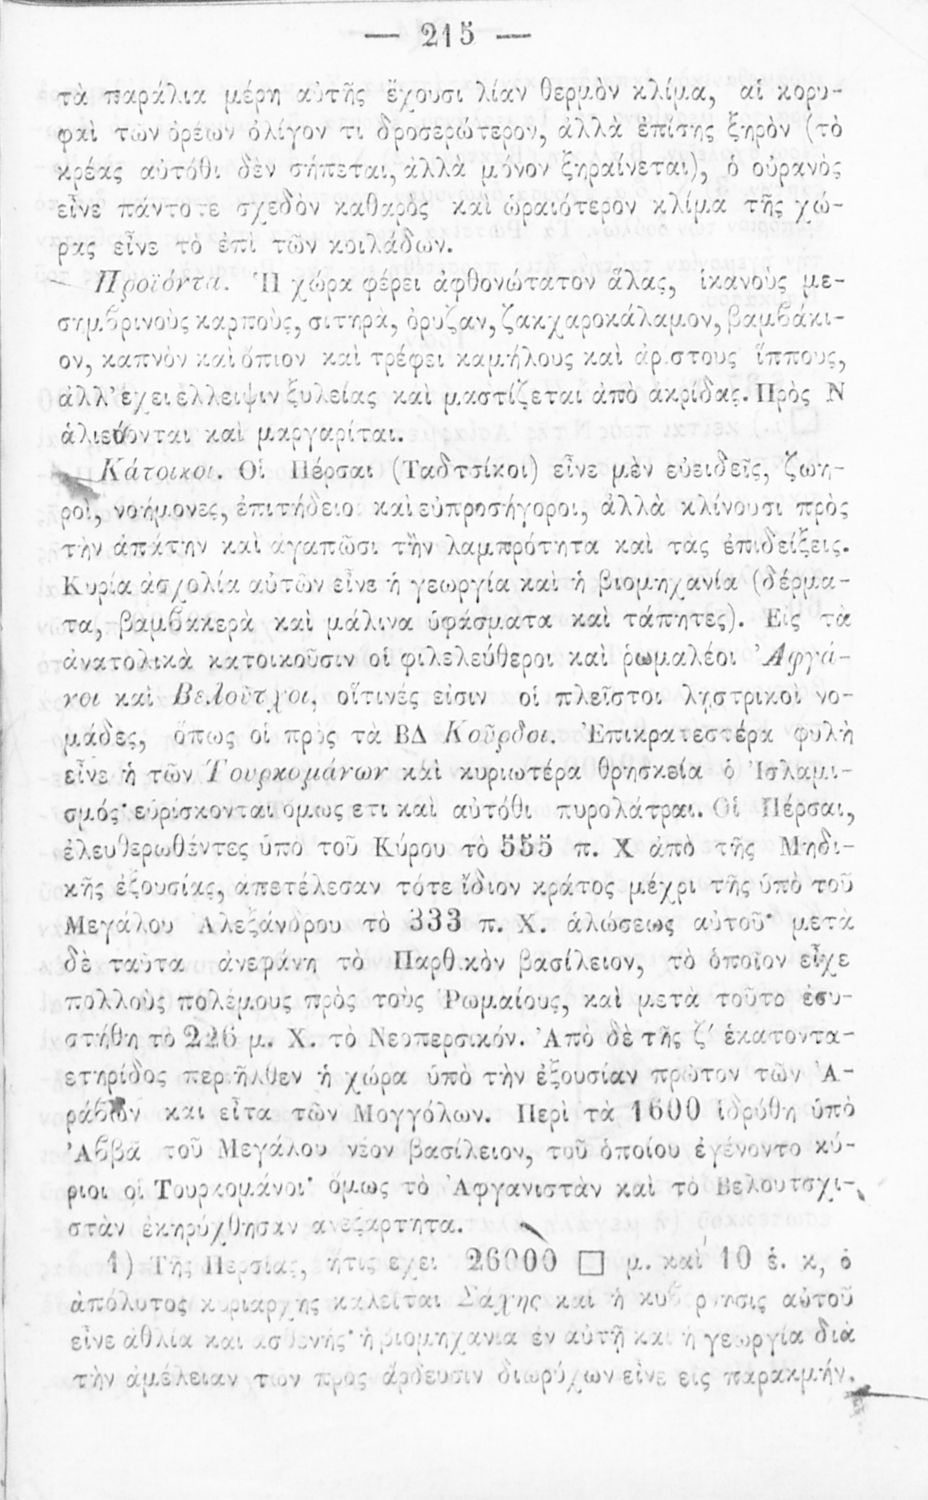 — 215 —
τὰ παράλια μέρη αὐτῆς ἔχουσι λίαν θερμὸν κλίμα, αἱ κορυ-
φαὶ τῶν ὀρέων ὀλίγον τι δροσερώτερον, ἀλλὰ ἐπίσης ξηρὸν (τὸ
κρέας αὐτόθι δὲν σήπεται, ἀλλὰ μόνον ξηραίνεται), ὁ οὐρανὸς
εἶνε πάντοτε σχεδὸν καθαρὸς καὶ ὡραιότερον κλίμα τῆς χώ-
ρας εἶνε τὸ ἐπὶ τῶν κοιλάδων.
Προϊόντα. Ἡ χώρα φέρει ἀφθονώτατον ἅλας, ἱκανοὺς με-
σημβρινοὺς καρποὺς, σιτηρὰ, ὀρύζαν, ζακχαροκάλαμον, βαμβάκι-
ον, καπνὸν καὶ ὄπιον καὶ τρέφει καμήλους καὶ ἀρίστους ἵππους,
ἀλλ' ἔχει ἔλλειψιν ξυλείας καὶ μαστίζεται ἀπὸ ἀκρίδας. Πρὸς Ν
ἁλιεύονται καὶ μαργαρίται.
Κάτοικοι. Οἱ Πέρσαι (Ταδτσίκοι) εἶνε μὲν εὐειδεῖς, ζωη-
ροὶ, νοήμονες, ἐπιτήδειοι καὶ εὐπροσήγοροι, ἀλλὰ κλίνουσι πρὸς
τὴν ἀπάτην καὶ ἀγαπῶσι τὴν λαμπρότητα καὶ τὰς ἐπιδείξεις.
Κυρία ἀσχολία αὐτῶν εἶνε ἡ γεωργία καὶ ἡ βιομηχανία (δέρμα-
τα, βαμβακερὰ καὶ μάλινα ὑφάσματα καὶ τάπητες). Εἰς τὰ
ἀνατολικὰ κατοικοῦσιν οἱ φιλελεύθεροι καὶ ῥωμαλέοι Ἀφγά-
νοι καὶ Βελοῦτχοι, οἵτινές εἰσιν οἱ πλεῖστοι λῃστρικοὶ νο-
μάδες, ὅπως οἱ πρὸς τὰ ΒΔ Κοῦρδοι. Ἐπικρατεστέρα φυλὴ
εἶνε ἡ τῶν Τουρκομάνων καὶ κυριωτέρα θρησκεία ὁ Ἰσλαμι-
σμός· εὑρίσκονται ὅμως ἔτι καὶ αὐτόθι πυρολάτραι. Οἱ Πέρσαι,
ἐλευθερωθέντες ὑπὸ τοῦ Κύρου τὸ 555 π. Χ ἀπὸ τῆς Μηδι-
κῆς ἐξουσίας, ἀπετέλεσαν τότε ἴδιον κράτος μέχρι τῆς ὑπὸ τοῦ
Μεγάλου Ἀλεξάνδρου τὸ 333 π. Χ. ἁλώσεως αὐτοῦ· μετὰ
δὲ ταῦτα ἀνεφάνη τὸ Παρθικὸν βασίλειον, τὸ ὁποῖον εἶχε
πολλοὺς πολέμους πρὸς τοὺς Ῥωμαίους, καὶ μετὰ τοῦτο ἐσυ-
στήθη τὸ 226 μ. Χ. τὸ Νεοπερσικόν. Ἀπὸ δὲ τῆς ζ' ἑκατοντα-
ετηρίδος περιῆλθεν ἡ χώρα ὑπὸ τὴν ἐξουσίαν πρῶτον τῶν Ἀ-
ράβων καὶ εἶτα τῶν Μογγόλων. Περὶ τὰ 1600 ἱδρύθη ὑπὸ
Ἀββᾶ τοῦ Μεγάλου νέον βασίλειον, τοῦ ὁποίου ἐγένοντο κύ-
ριοι οἱ Τουρκομάνοι· ὅμως τὸ Ἀφγανιστὰν καὶ τὸ Βελουτσχι-
στὰν ἐκηρύχθησαν ἀνεξάρτητα.
1) Τῆς Περσίας, ἥτις ἔχει 26000 □ μ. καὶ 10 ἑ. κ, ὁ
ἀπόλυτος κυριάρχης καλεῖται Σάχης καὶ ἡ κυβέρνησις αὐτοῦ
εἶνε ἀθλία καὶ ἀσθενής· ἡ βιομηχανία ἐν αὐτῇ καὶ ἡ γεωργία διὰ
τὴν ἀμέλειαν τῶν πρὸς ἄρδευσιν διωρύχων εἶνε εἰς παρακμήν.